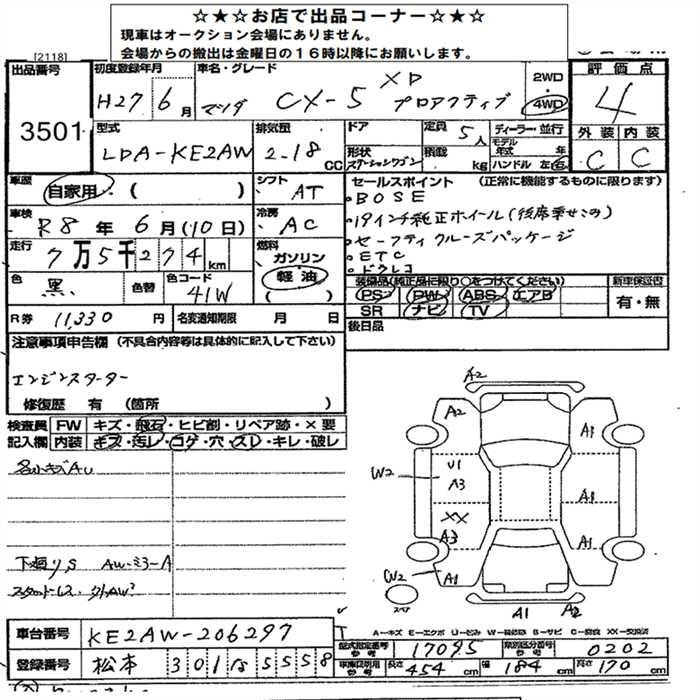 ☆★☆お店で出品コーナー☆★☆
現車はオークション会場にありません。
会場からの搬出は金曜日の16時以降にお願いします。
[2118]
出品番号 3501
初度登録年月 H27年 6月
車名・グレード マツダ CX-5 XD プロアクティブ
2WD 4WD
評価点 4
外装 C 内装 C
型式 LDA-KE2AW
排気量 2.18 CC
ドア
形状 ステーションワゴン
定員 5人
積載 kg
ディーラー・並行
モデル年式 年
ハンドル 左・右
車歴 自家用 ( )
シフト AT
車検 R8年 6月(10日)
冷房 AC
走行 7万5千274km
燃料 ガソリン 軽油 ( )
色 黒 色替 色コード 41W
R券 11,330円 名変通知期限 月 日
セールスポイント (正常に機能するものに限ります)
・BOSE
・19インチ純正ホイール(後席乗せこみ)
・セーフティクルーズパッケージ
・ETC
・ドラレコ
装備品(純正品に限り○をつけてください)
PS PW ABS エアB
SR ナビ TV
新車保証書 有・無
後日品
注意事項申告欄 (不具合内容等は具体的に記入して下さい)
エンジンスターター
修復歴 有 (箇所 )
検査員記入欄
FW キズ・飛石・ヒビ割・リペア跡・×要
内装 キズ・汚レ・コゲ・穴・スレ・キレ・破レ
下廻りS AWミラーA
A2
A2 A1
W2 U1 A3 A1
XX A3 A1
W2 A1 A1
スペア
A1 A2
A-キズ E-エクボ U-凹み W-補修跡 S-サビ C-腐食 XX-交換済
車台番号 KE2AW-206297
登録番号 松本 301 な 5558
型式指定番号 参考 17095 類別区分番号 参考 0202
車庫証明用 参考 長さ 454cm 幅 184cm 高さ 170cm